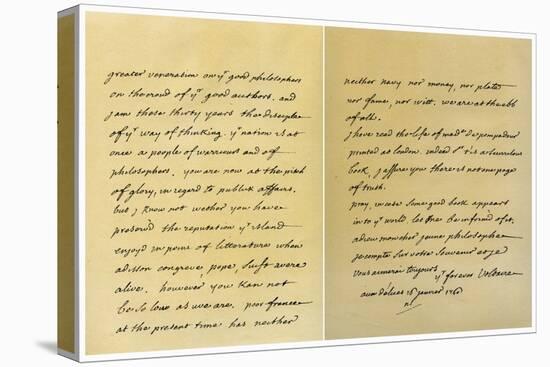 greater veneration on yr good philosophers
on the croud of yr good authors. and
j am these thirty years the disciple
of yr way of thinking. yr nation is at
once a people of warriours and of
philosophers. you are now at the pitch
of glory, in regard to publick affairs.
but j know not wether you have
preserv'd the reputation yr island
enjoy'd in point of litterature when
adisson congreve, pope, suift, were
alive. however you kan not
be so low as we are. poor france
at the present time has neither
neither navy nor money, nor plate
nor fame, nor witt. we are at the ebb
of all.
j have read the life of mad. de pompadour
printed at london. indeed sr t'is a scurulous
book, j assure you there is not one page
of truth.
pray, in case some good book appears
in to yr world, let me be inform'd of it.
adieu mon cher jeune philosophe
je compte sur votre souvenir et je
vous aimerai toujours yr forever Voltaire
aux délices 16 janvier 1760